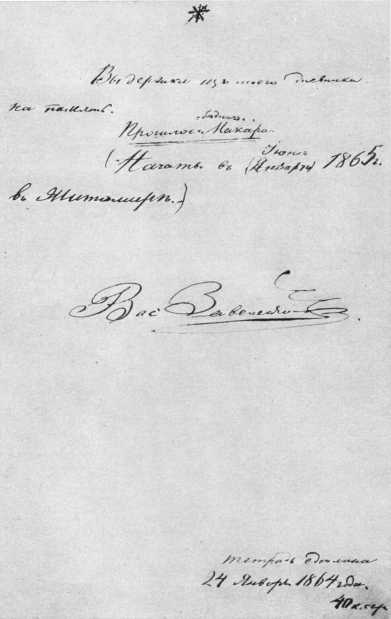 Выдержки изъ моего дневника
на память.
бѣднаго
Прошлое Макара.
Іюнѣ
(Начатъ въ (Январѣ) 1865 г.
въ Житомирѣ.)
Вас
тетрадь сдѣлана
24 Января 1864 года.
40 к. сер